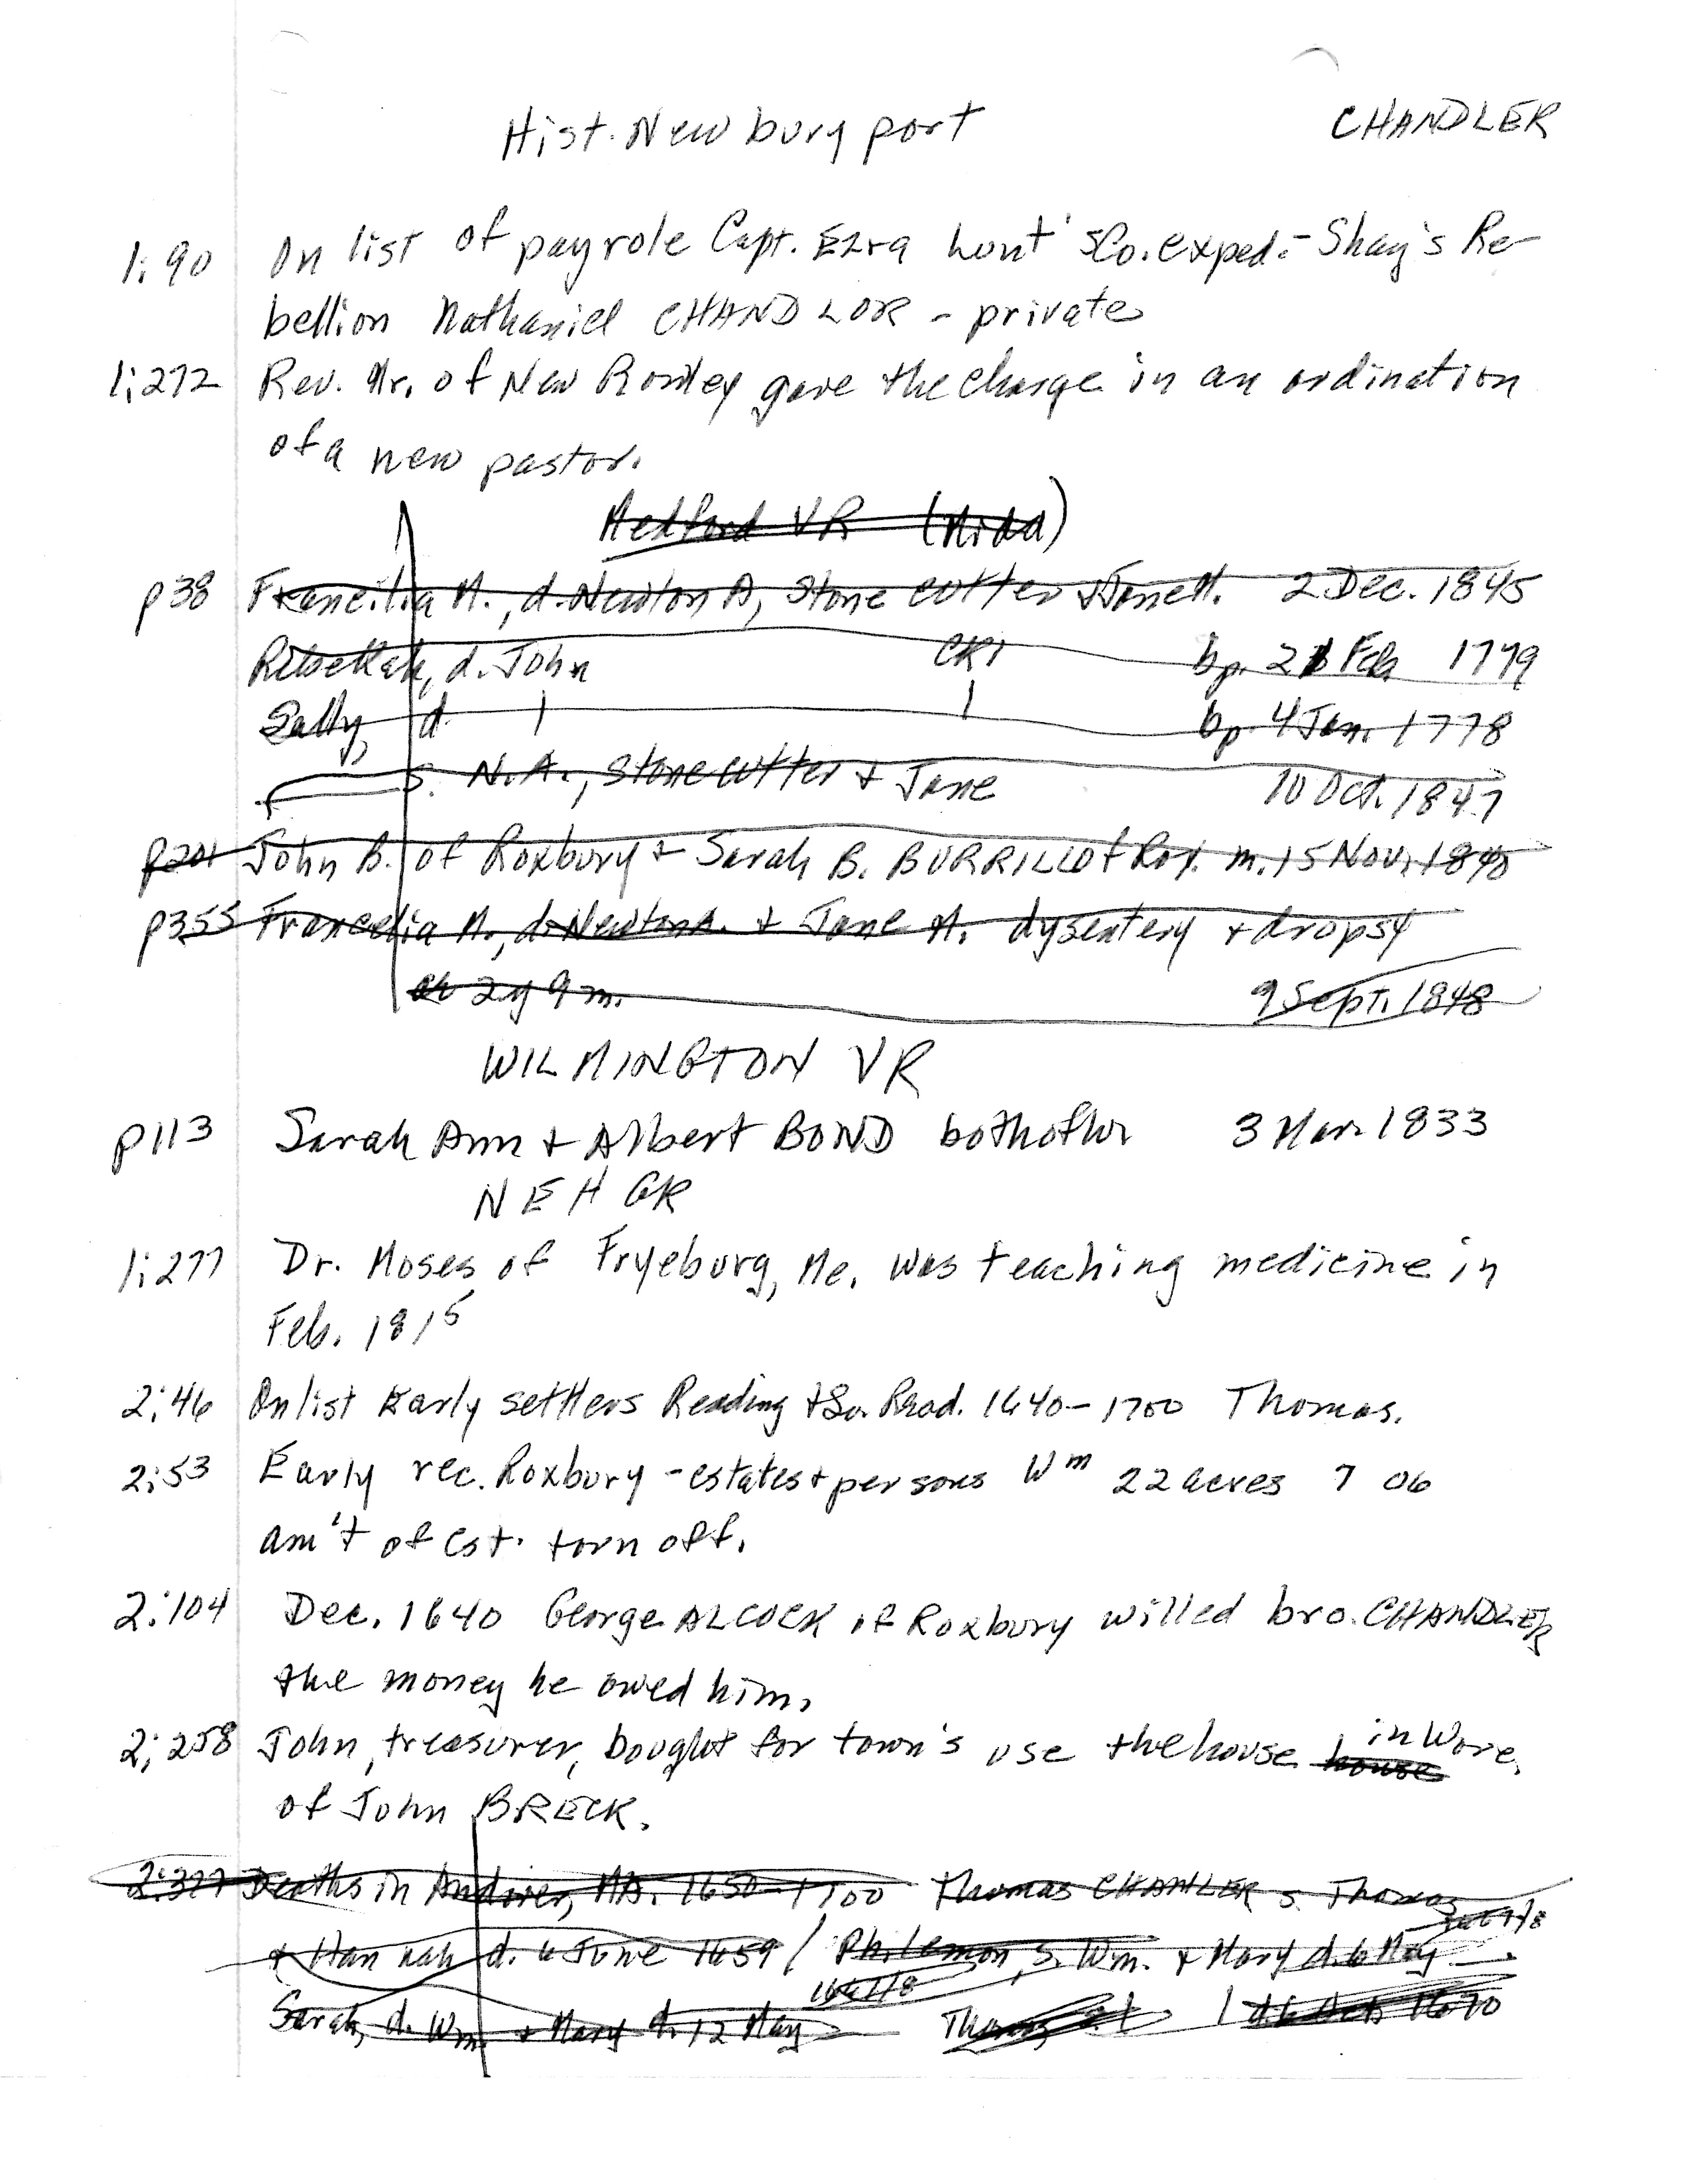 Hist. Newburyport CHANDLER
1:90 On list of payrole Capt. Ezra Lunt's Co. exped.- Shay's Re-
bellion Nathaniel CHANDLOR - private
1:272 Rev. Mr. of New Rowley gave the charge in an ordination
of a new pastor.
Medford VR (Midd)
p38 Francilia M., d. Newton A, Stone cutter & Jane M. 2 Dec. 1845
Rebeckah, d. John CR1 bp. 21 Feb 1779
Sally, d. | | bp. 4 Jan. 1778
s. N.A., Stone cutter & Jane 10 Oct. 1847
p201 John B. of Roxbury & Sarah B. BURRILL of Rox. m. 15 Nov. 1840
p355 Francelia M., d. Newton A. & Jane M. dysentery & dropsy
2y 9m. 9 Sept. 1848
WILMINGTON VR
p113 Sarah Ann & Albert BOND both of W 3 Mar. 1833
NEHGR
1:277 Dr. Moses of Fryeburg, Me. was teaching medicine in
Feb. 1815
2:46 On list Early settlers Reading & So. Read. 1640-1700 Thomas.
2:53 Early rec. Roxbury - estates & persons Wm 22 acres 7 06
am't of est. torn off.
2:104 Dec. 1640 George ALCOCK of Roxbury willed bro. CHANDLER
the money he owed him.
2:258 John, treasurer, bought for town's use the house house in Worc.
of John BRECK.
2:377 Deaths in Andover, MA. 1650-1700 Thomas CHANLER s. Thomas
& Hannah d. 6 June 1659 / Philemon, s. Wm. & Mary d. 6 May
Sarah, d. Wm. & Mary d. 12 May Thomas 1670